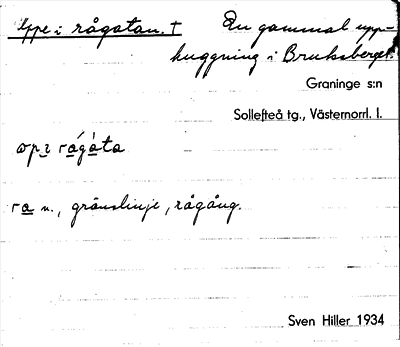 Uppe i rågatan. † En gammal upp-
huggning i Bruksberget.
Graninge s:n
Sollefteå tg., Västernorrl. l.
ɷpɩ rágàta
ra n., gränslinje, rågång.
Sven Hiller 1934